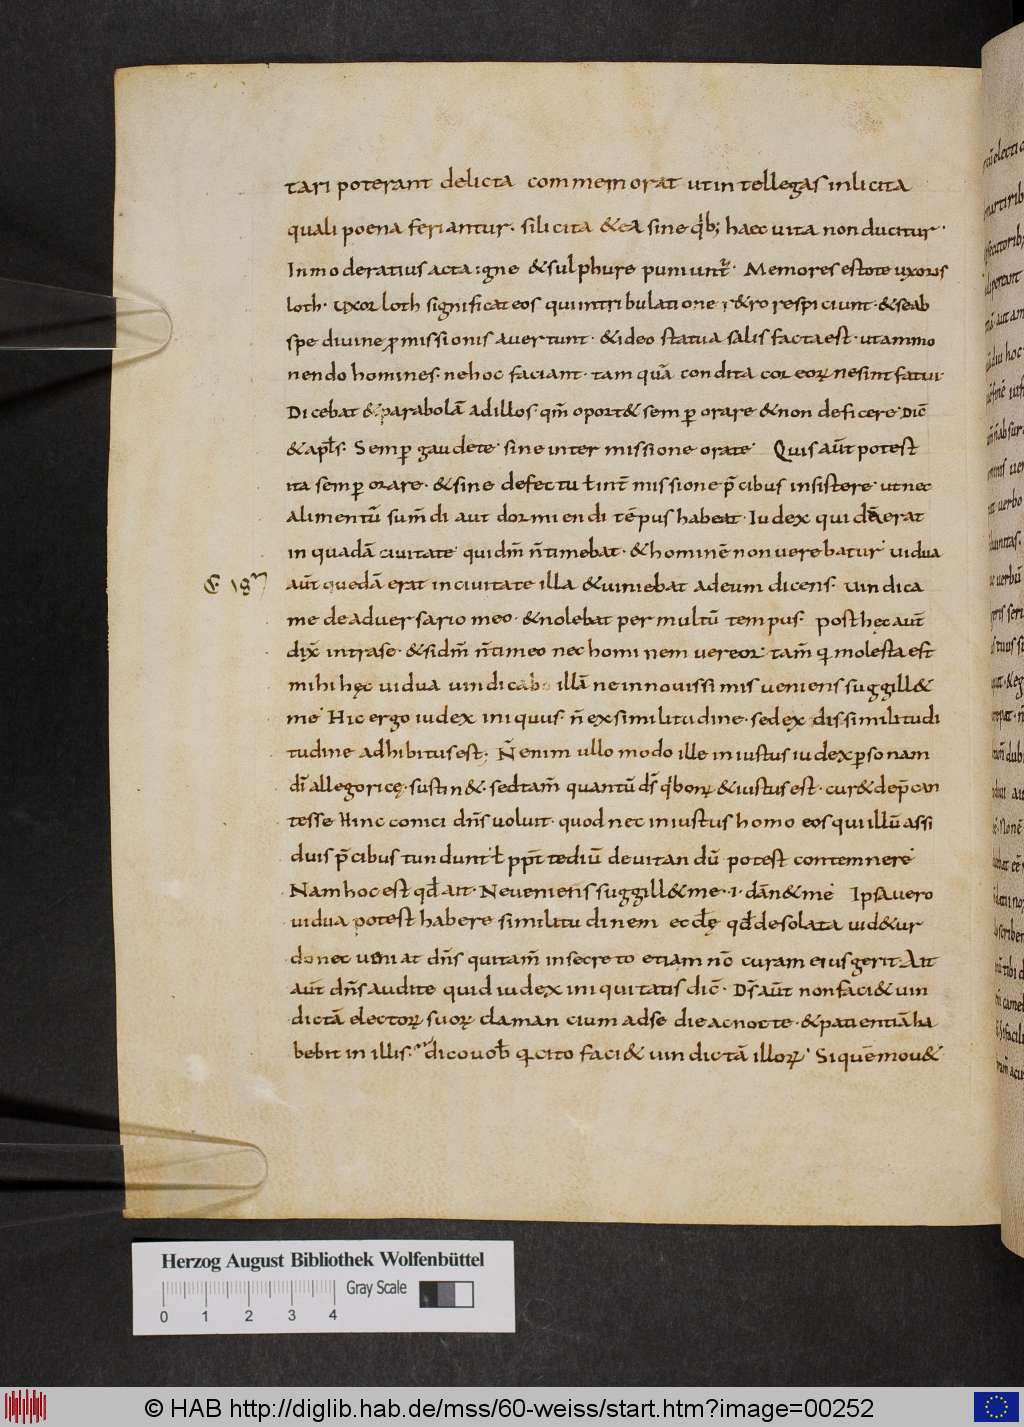 tari poterant delicta commemorat ut intellegas inlicita
quali poena feriantur· si licita & ea sine qͥb; haec uita non ducitur·
Inmoderatius acta igne & sulphure puniunt᷑· Memores estote uxoris
loth· uxor loth significat eos qui in tribulatione r&ro respiciunt· & se ab
spe diuine ꝓmissionis auertunt· & ideo statua salis facta est· ut ammo
nendo homines· ne hoc faciant· tam quā condita cor eoꝝ ne sint fatui·
Dicebat & parabolā ad illos· qm̄ oport& semꝑ orare & non deficere· Dic̄
& apl̄s· Semꝑ gaudete· sine intermissione orate· Quis aūt potest
ita semꝑ orare· & sine defectu ł int̄missione p̄cibus insistere· ut nec
alimentū sum̄di aut dormiendi tēpus habeat· Iudex quidā erat
in quadā ciuitate qui dm̄ n̄ timebat· & hominē non uerebatur· uidua
aūt quedā erat in ciuitate illa & uiniebat ad eum dicens· uindica
me de aduersario meo· & nolebat per multū tempus· post hęc aūt
dix̄ intra se· & si dm̄ n̄ timeo nec hominem uereor· tam̄ q molesta est
mihi hęc uidua uindicabo illā ne in nouissimis ueniens suggill&
me· Hic ergo iudex iniquus· n̄ ex similitudine· sed ex dissimilitudi
tudine adhibitus est· N̄ enim ullo modo ille iniustus iudex ꝑsonam
dī allegoricę· sustin&· sed tam̄ quantū ds̄ qͥ bonꝰ & iustus est· cur& dep̄can
tesse Hinc conici dn̄s uoluit· quod nec iniustus homo eos qui illū assi
duis p̄cibus tundunt ł ꝓpt̄ tediū deuitandū potest contemnere·
Nam hoc est qđ ait· Ne ueniens suggill& me· i· dān& me· Ipsa uero
uidua potest habere similitudinem ecclę qđ desolata uid&ur
donec ueniat dn̄s qui tam̄ in secreto etiam nc̄ curam eius gerit· Ait
aūt dn̄s audite quid iudex iniquitatis dic̄· Ds̄ aūt non faci& uin
dictā electoꝝ suoꝝ clamancium ad se die ac nocte· & patientiā ha
bebit in illis· dico uob̄ q cito faci& uindictā illoꝝ· Si quē mou&
Herzog August Bibliothek Wolfenbüttel
Gray Scale
0 1 2 3 4
© HAB http://diglib.hab.de/mss/60-weiss/start.htm?image=00252